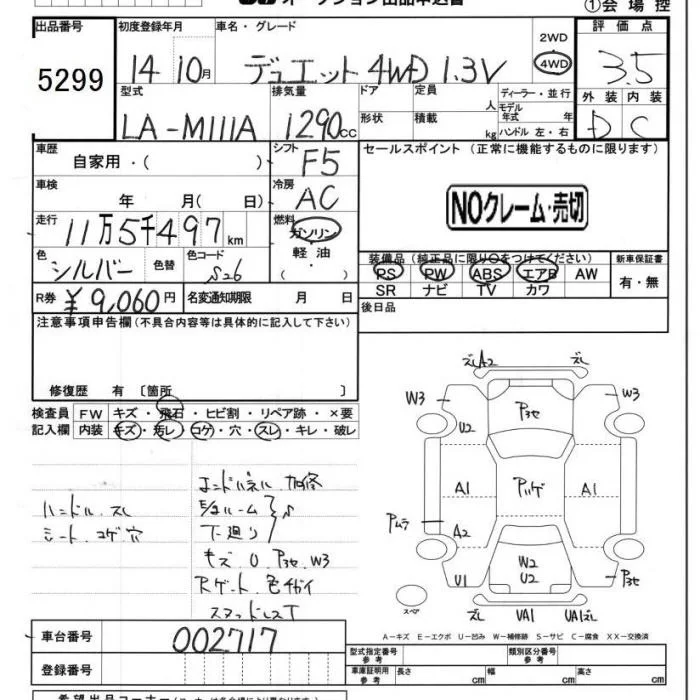 オークション出品申込書
①会場控
出品番号 初度登録年月 車名・グレード 評価点
5299 14 10月 デュエット 4WD 1.3V 2WD 4WD 3.5
型式 排気量 ドア 定員 ディーラー・並行 外装 内装
人 モデル年式 年
LA-M111A 1290cc 形状 積載 kg ハンドル 左・右 D C
車歴 シフト セールスポイント (正常に機能するものに限ります)
自家用・( ) F5
車検 冷房
年 月( 日) AC
NOクレーム・売切
走行 燃料
11万5千497km ガソリン
軽油
・( )
色 色替 色コード 装備品(純正品に限り○をつけてください) 新車保証書
シルバー S26 PS PW ABS エアB AW 有・無
SR ナビ TV カワ
R券 ¥9,060円 名変通知期限 月 日
後日品
注意事項申告欄(不具合内容等は具体的に記入して下さい)
修復歴 有 〔箇所 〕
検査員 FW キズ・飛石・ヒビ割・リペア跡・×要
記入欄 内装 キズ・汚レ・コゲ・穴・スレ・キレ・破レ
エンドパネル 加修
ハンドル.スレ
シート.コゲ穴
下廻り S
キズ.U.P3セ.W3
Rゲート.色チガイ
スタッドレスT
ズレA2 ズレ
W3 P3セ W3
U2
A1 A1
A2
W2
U2
U1 P3セ
スペア ズレ UA1 UA1ズレ
A−キズ E−エクボ U−凹み W−補修跡 S−サビ C−腐食 XX−交換済
車台番号 002717
型式指定番号 参考 類別区分番号 参考
登録番号 車庫証明用 参考 長さ cm 幅 cm 高さ cm